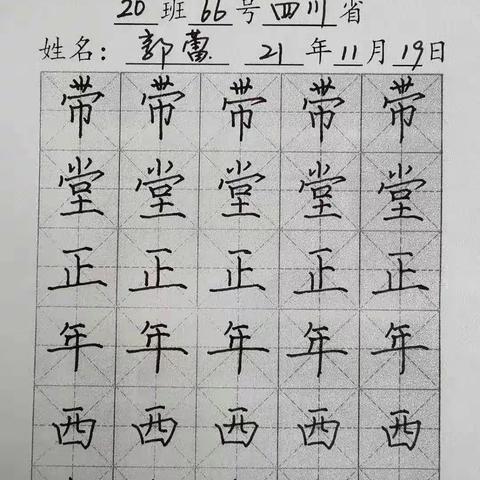 20班66号四川省
姓名：郭蕾 21年11月19日
带带带带带
堂堂堂堂堂
正正正正正
年年年年年
西西西西西